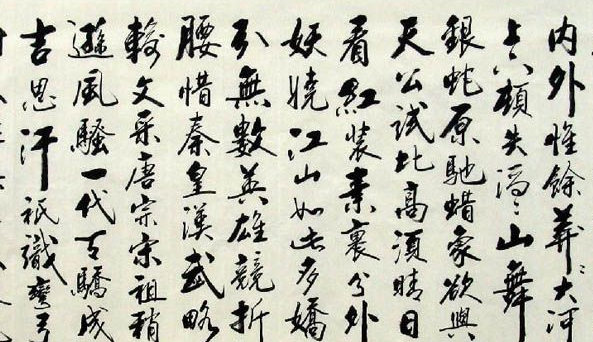 内外惟餘莽〻大河
上下頓失滔〻山舞
銀蛇原馳蜡象欲與
天公試比高須晴日
看紅裝素裹分外
妖嬈江山如此多嬌
引無數英雄競折
腰惜秦皇漢武略
輸文采唐宗宋祖稍
遜風騷一代天驕成
吉思汗祇識彎弓